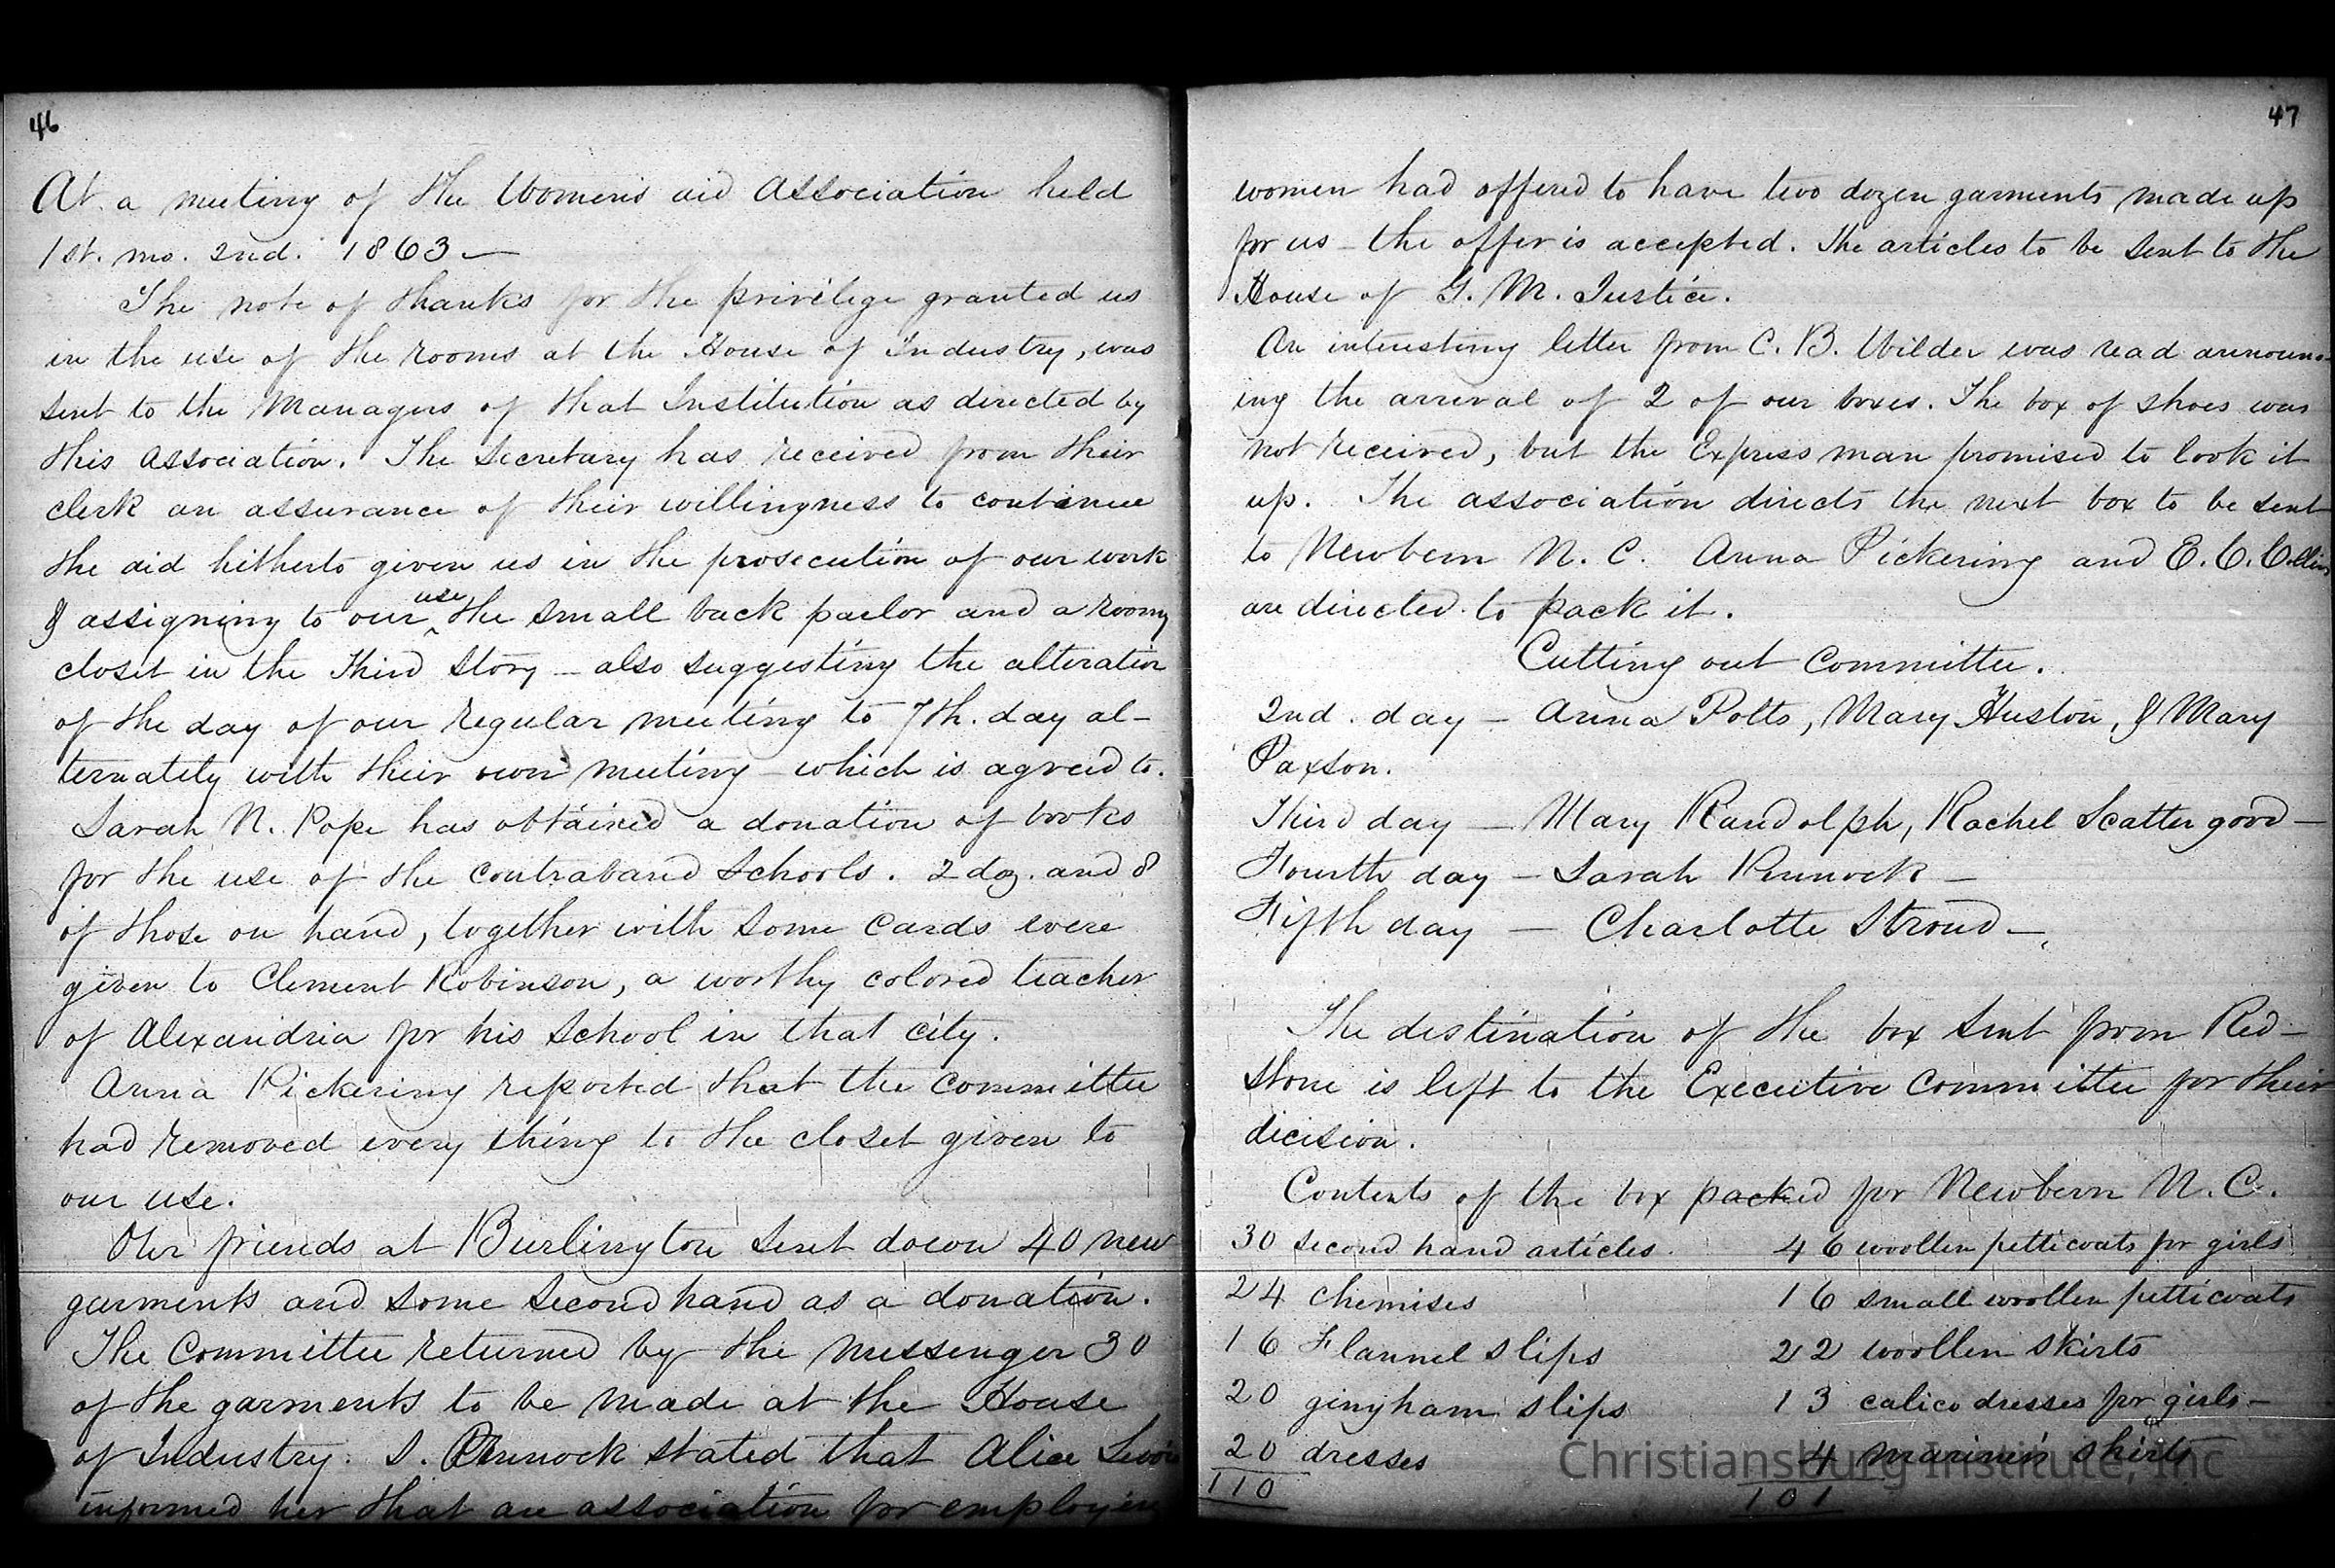 46
At a meeting of the Women's aid Association held
1st. mo. 2nd. 1863 —
The note of thanks for the privilege granted us
in the use of the rooms at the House of Industry, was
sent to the Managers of that Institution as directed by
this Association. The Secretary has received from their
clerk an assurance of their willingness to continue
the aid hitherto given us in the prosecution of our work
& assigning to our use the small back parlor and a roomy
closet in the Third Story – also suggesting the alteration
of the day of our regular meeting to 7th. day al-
ternately with their own meeting – which is agreed to.
Sarah N. Pope has obtained a donation of books
for the use of the Contraband Schools. 2 doz. and 8
of those on hand, together with some cards were
given to Clement Robinson, a worthy colored teacher
of Alexandria for his School in that city.
Anna Pickering reported that the committee
had removed every thing to the closet given to
our use.
Our friends at Burlington sent down 40 new
garments and some second hand as a donation.
The Committee returned by the messenger 30
of the garments to be made at the House
of Industry. S. Pennock stated that Alice Lewis
informed her that an association for employing
47
women had offered to have two dozen garments made up
for us – the offer is accepted. The articles to be sent to the
House of G. M. Justice.
An interesting letter from C. B. Wilder was read announc-
ing the arrival of 2 of our boxes. The box of shoes was
not received, but the Express man promised to look it
up. The association directs the next box to be sent
to Newbern N. C. Anna Pickering and E. C. Collins
are directed to pack it.
Cutting out Committee.
2nd. day – Anna Potts, Mary Huston, & Mary
Paxson.
Third day — Mary Randolph, Rachel Scattergood —
Fourth day – Sarah Pennock –
Fifth day — Charlotte Stroud –
The destination of the box sent from Red-
stone is left to the Executive Committee for their
dicision.
Contents of the box packed for Newbern N. C.
30 second hand articles. 46 woollen petticoats for girls
24 chemises 16 small woollen petticoats
16 Flannel slips 22 woollen skirts
20 gingham slips 13 calico dresses for girls –
20 dresses 4 mariner's shirts
110 101
Christiansburg Institute, Inc